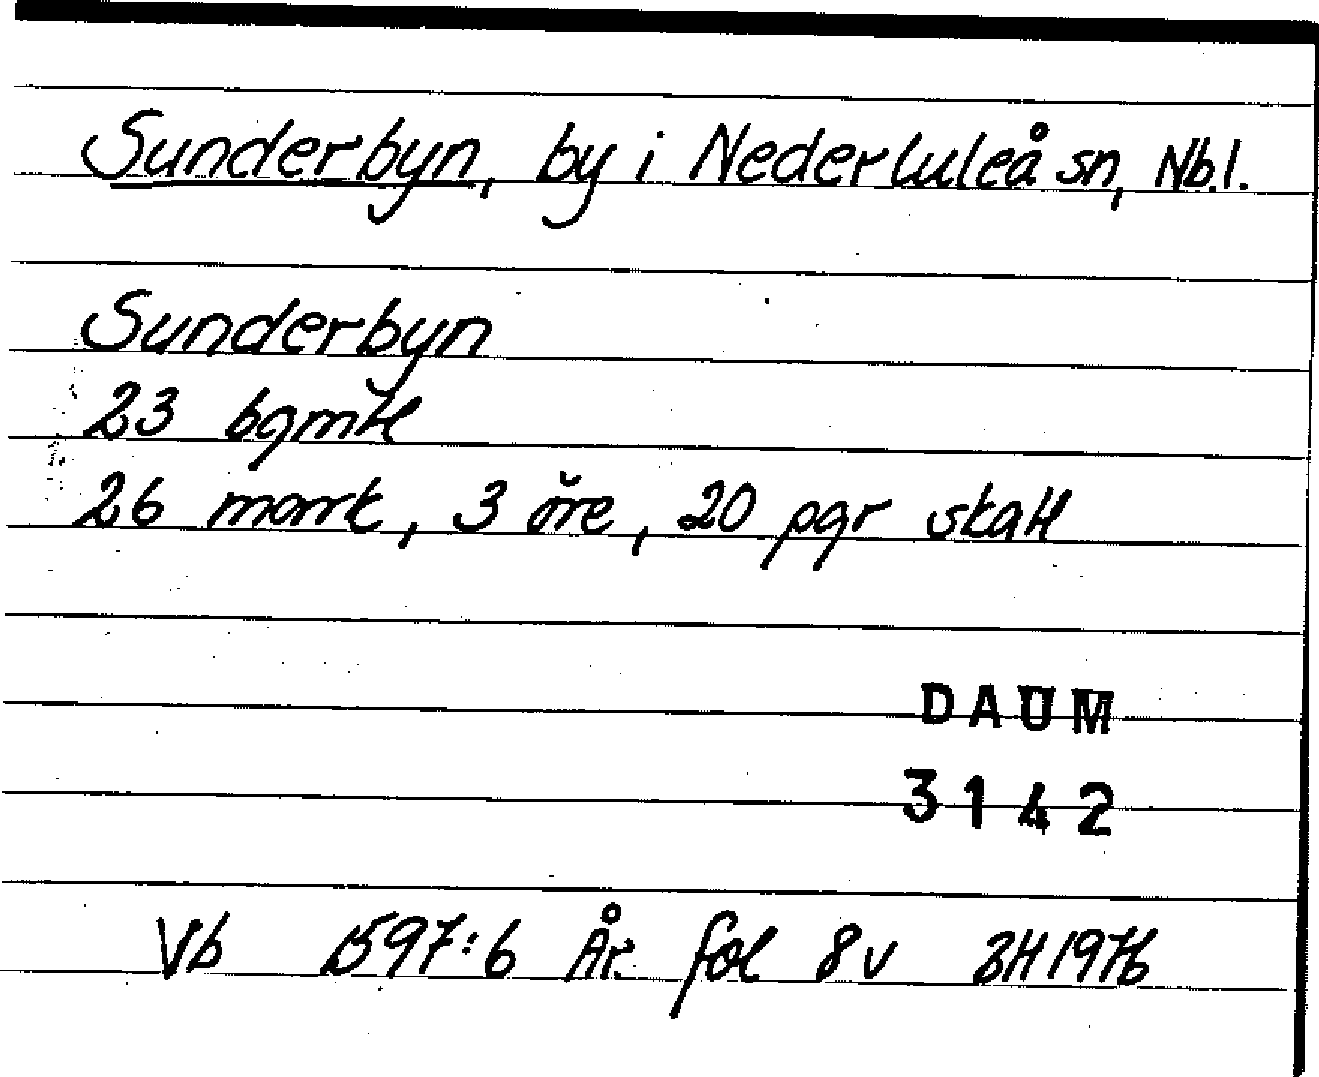 Sunderbyn, by i Nederluleå sn, Nb.l.
Sunderbyn
23 bgmtl
26 mark, 3 öre, 20 pgr skatt
DAUM
3142
Vb 1597:6 År. fol 8v 1976